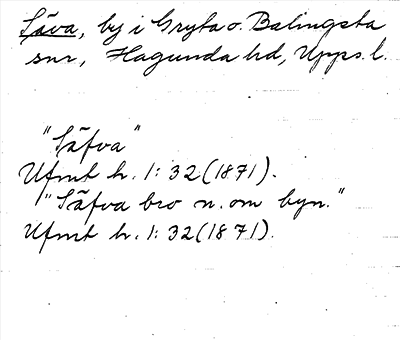 Säva, by i Gryta o. Balingsta
snr, Hagunda hd, Upps. l.
"Säfva"
Ufmt h. 1: 32 (1871).
"Säfva bro n. om byn."
Ufmt h. 1: 32 (1871).